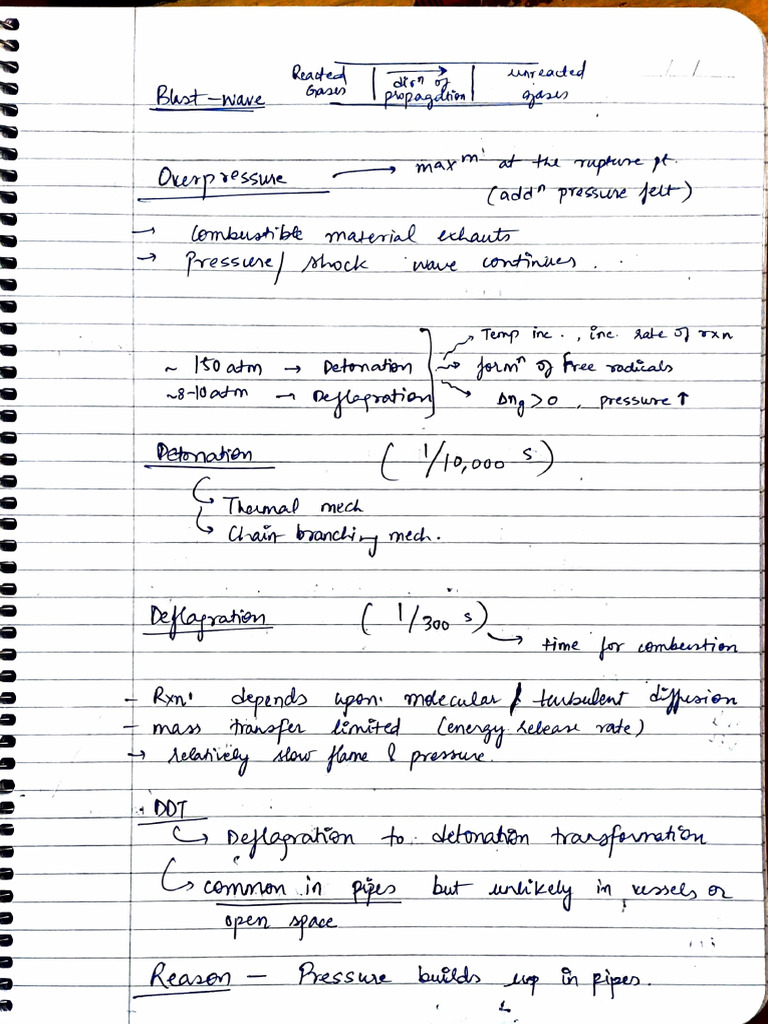 Reacted Gases | dirⁿ of propagation | unreacted gases
Blast-wave
Overpressure → maxᵐ. at the rupture pt.
(addⁿ pressure felt)
→ Combustible material exhauts
→ Pressure/ shock wave continues.
Temp inc., inc. rate of rxn
~ 150 atm → Detonation
formⁿ of free radicals
~8-10 atm → Deflagration
Δng > 0, pressure ↑
Detonation ( 1/10,000 s )
Thermal mech
Chain branching mech.
Deflagration ( 1/300 s )
→ time for combustion
- Rxn. depends upon molecular / turbulent diffusion
- mass transfer limited (energy release rate)
→ relatively slow flame & pressure.
. DDT
↳ Deflagration to detonation transformation
↳ common in pipes but unlikely in vessels or
open space
Reason - Pressure builds up in pipes.